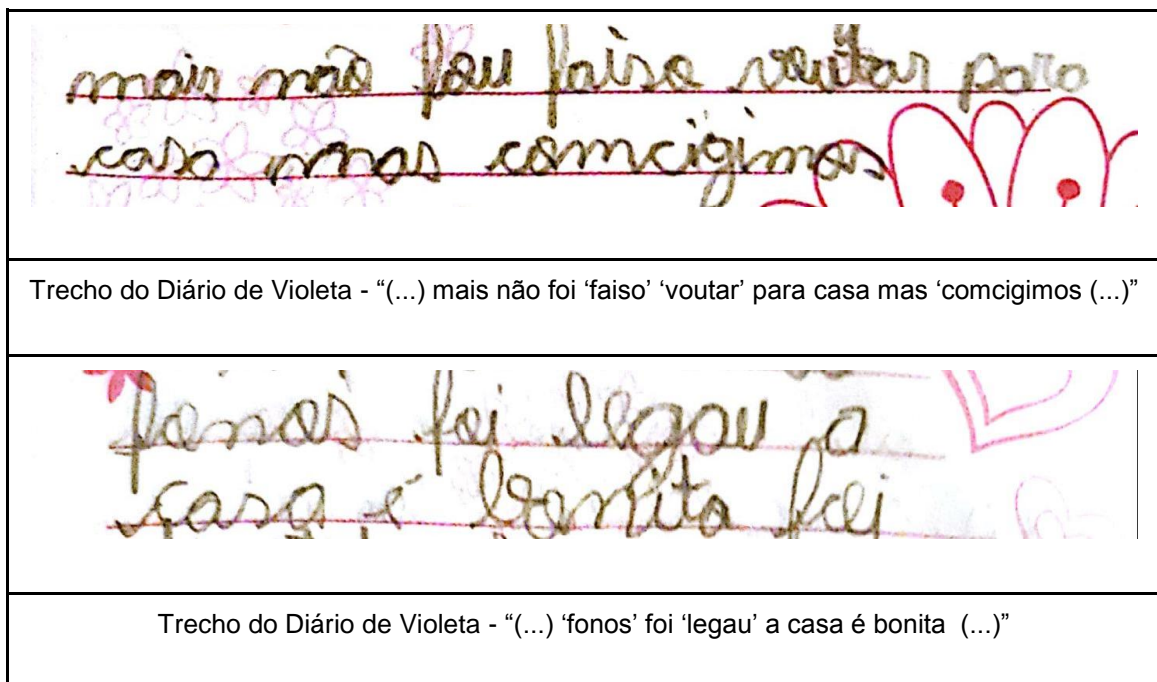 mais não fou faiso voutar para
casa mas comcigimos
Trecho do Diário de Violeta - “(...) mais não foi ‘faiso’ ‘voutar’ para casa mas ‘comcigimos (...)”
fonos foi legau a
casa é bonita foi
Trecho do Diário de Violeta - “(...) ‘fonos’ foi ‘legau’ a casa é bonita (...)”